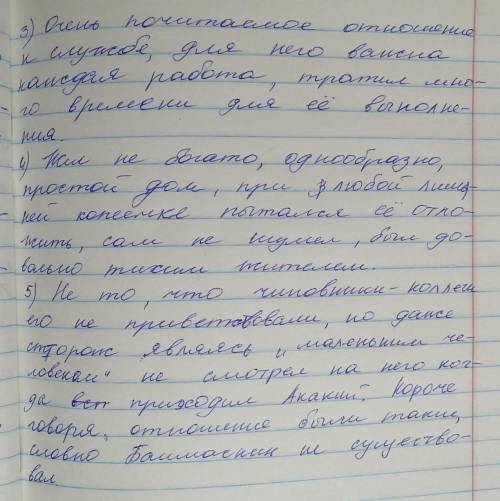 3) Очень почитаемое отношение
к службе, для него важна
каждая работа, тратил мно-
го времени для её выполне-
ния.
4) Жил не богато, однообразно,
простой дом, при любой лиш-
ней копеечке пытался её отло-
жить, сам не шумел, был до-
вольно тихим жителем.
5) Не то, что чиновники-коллеги
его не приветствовали, но даже
сторож являясь "маленьким че-
ловеком" не смотрел на него ког-
да приходил Акакий. Короче
говоря, отношение были такие,
словно Башмачкин не существо-
вал.